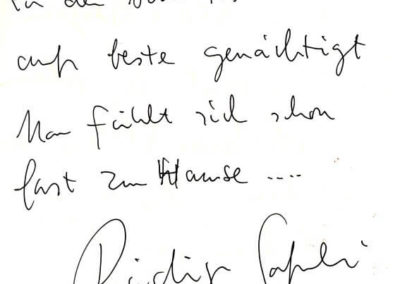 in der
aufs beste genächtigt
Man fühlt sich schon
fast zu Hause ....
Rüdiger